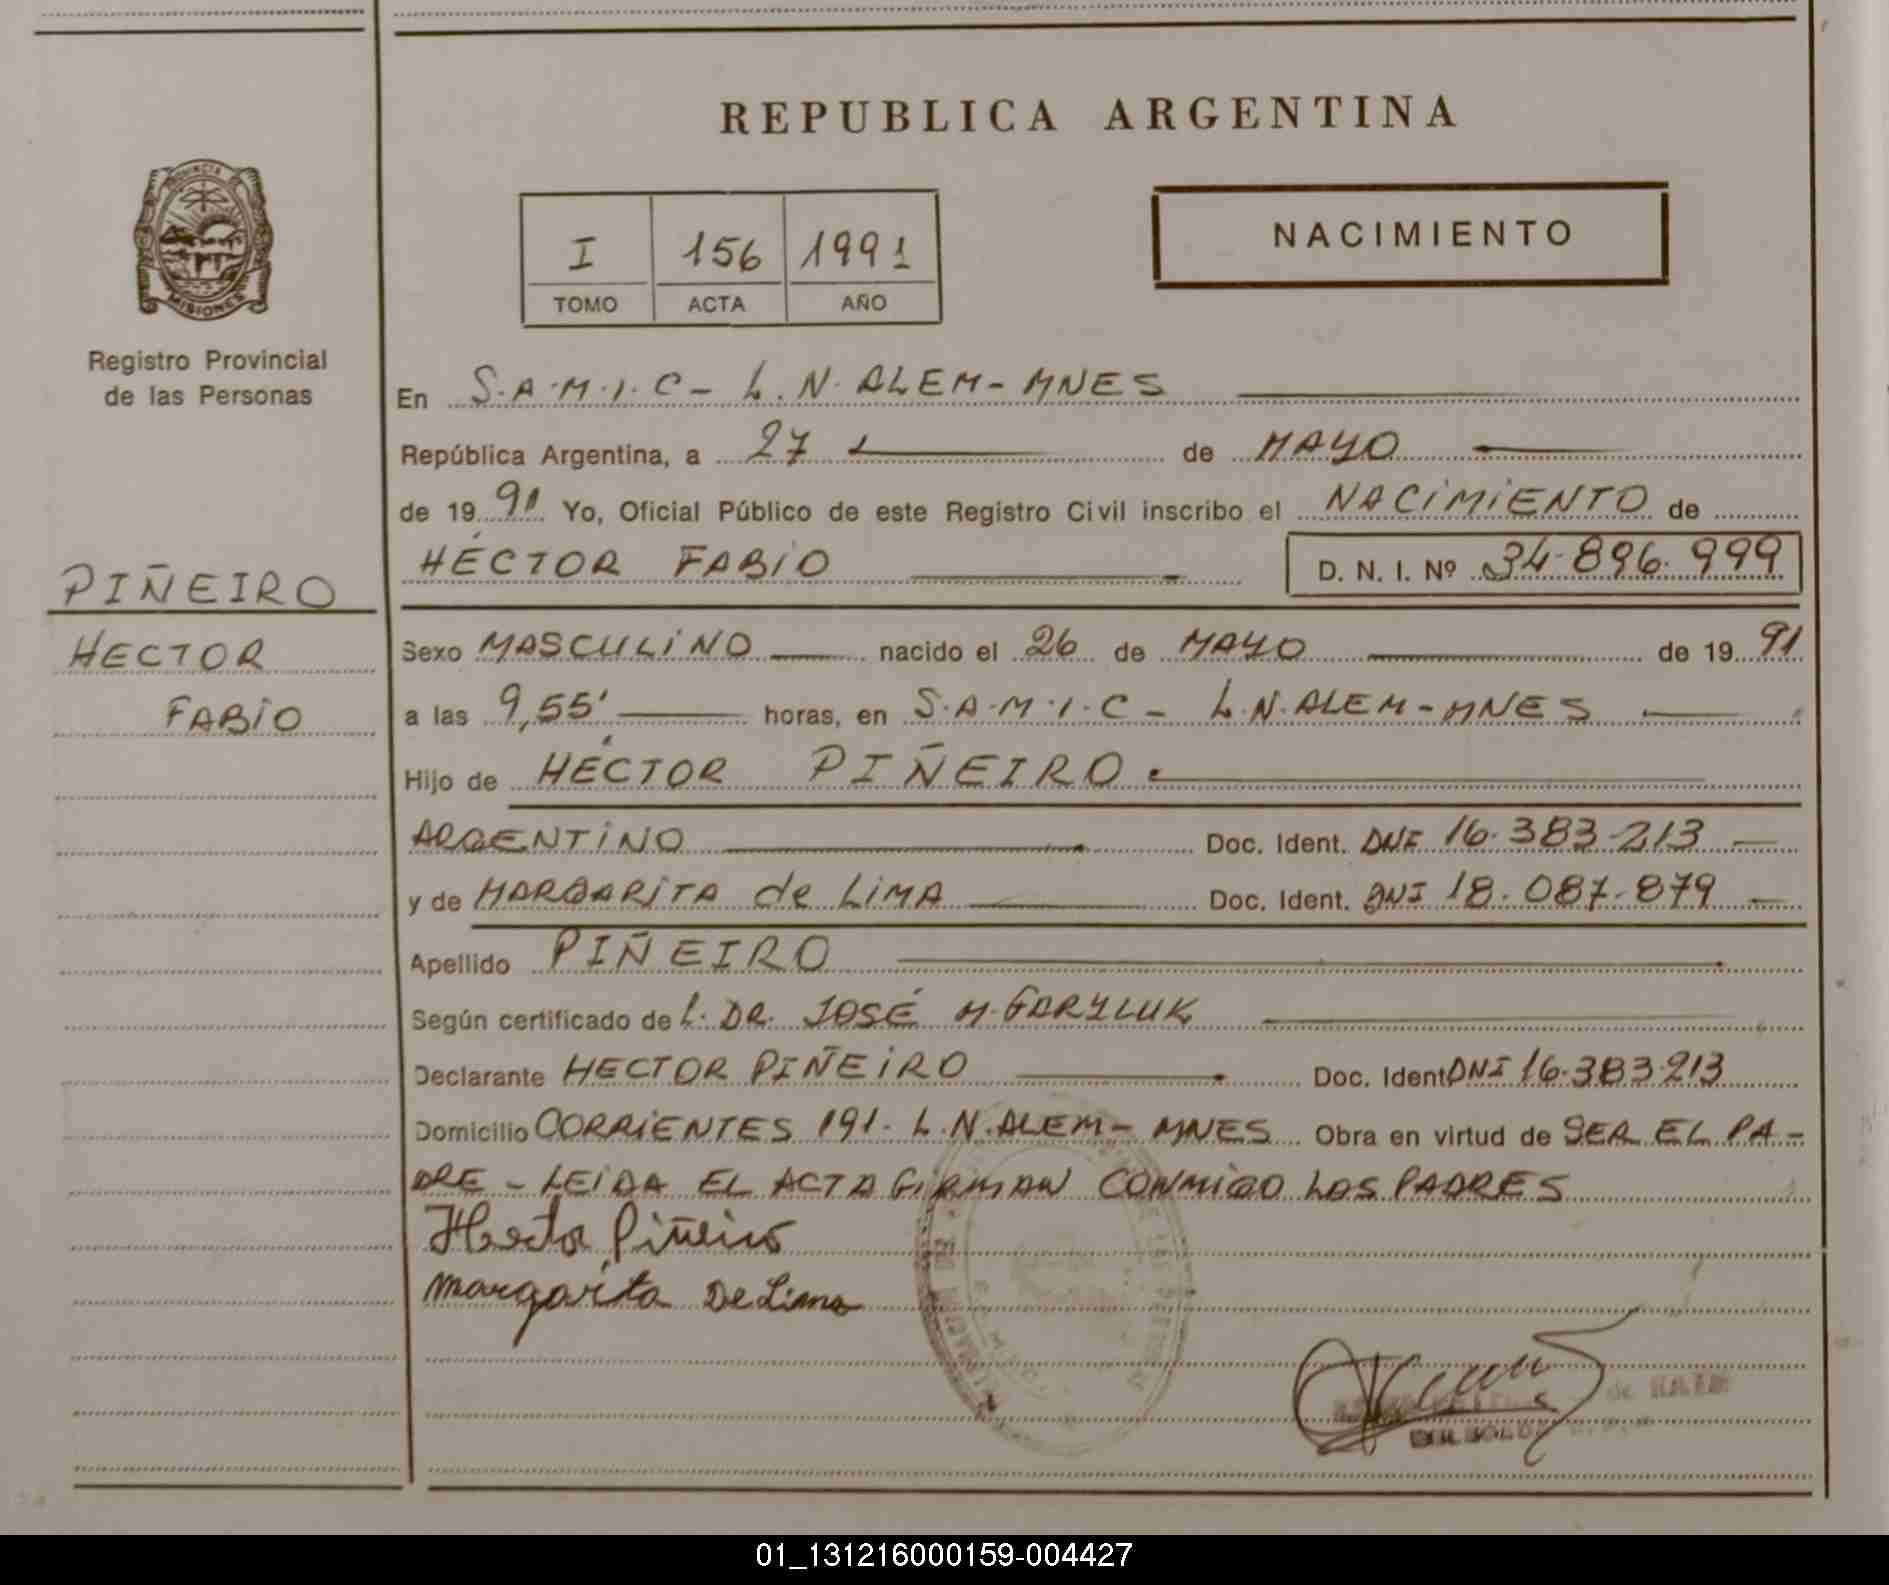 REPUBLICA ARGENTINA
PROVINCIA DE
MISIONES
Registro Provincial
de las Personas
I 156 1991
TOMO ACTA AÑO
NACIMIENTO
En S.A.M.I.C - L.N. ALEM - MNES
República Argentina, a 27 de MAYO
de 19 91 Yo, Oficial Público de este Registro Civil inscribo el NACIMIENTO de
HÉCTOR FABIO D. N. I. Nº 34.896.999
PIÑEIRO
HECTOR
FABIO
Sexo MASCULINO nacido el 26 de MAYO de 19 91
a las 9,55' horas, en S.A.M.I.C - L.N. ALEM - MNES
Hijo de HÉCTOR PIÑEIRO
ARGENTINO Doc. Ident. DNI 16.383.213
y de MARGARITA de LIMA Doc. Ident. DNI 18.087.879
Apellido PIÑEIRO
Según certificado de L. DR. JOSÉ M. GARYLUK
Declarante HECTOR PIÑEIRO Doc. Ident DNI 16.383.213
Domicilio CORRIENTES 191. L.N. ALEM - MNES Obra en virtud de SER EL PA-
DRE - LEIDA EL ACTA FIRMAN CONMIGO LOS PADRES
Hector Piñeiro
Margarita De Lima
01_131216000159-004427